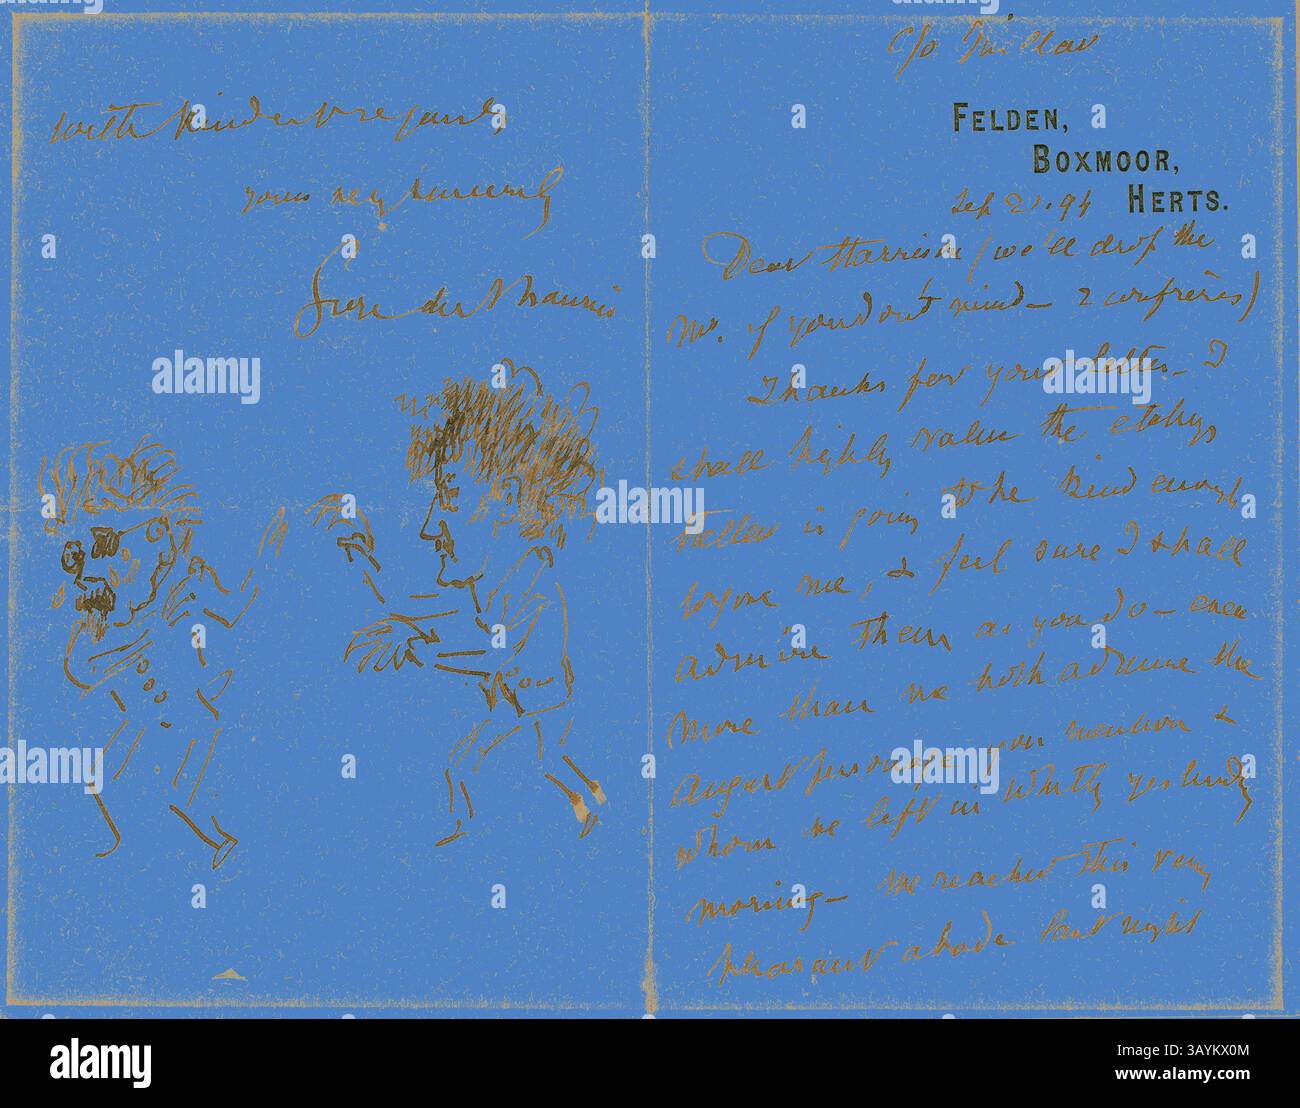 with kindest regards,
yours very sincerely
George du Maurier
c/o
FELDEN,
BOXMOOR,
HERTS.
Sep 21. 94
Dear Harrison (we'll drop the
Mr. if you don't mind - 2 confrères)
Thanks for your letter - I
shall highly value the etchings
is going to be kind enough
to give me, & feel sure I shall
admire them as you do - even
more than we both admire the
august personage you mention &
whom we left in Whitby yesterday
morning - We reached this very
pleasant abode last night
alamy
alamy
alamy
alamy
alamy
alamy
alamy
Image ID: 3AYKX0M
www.alamy.com